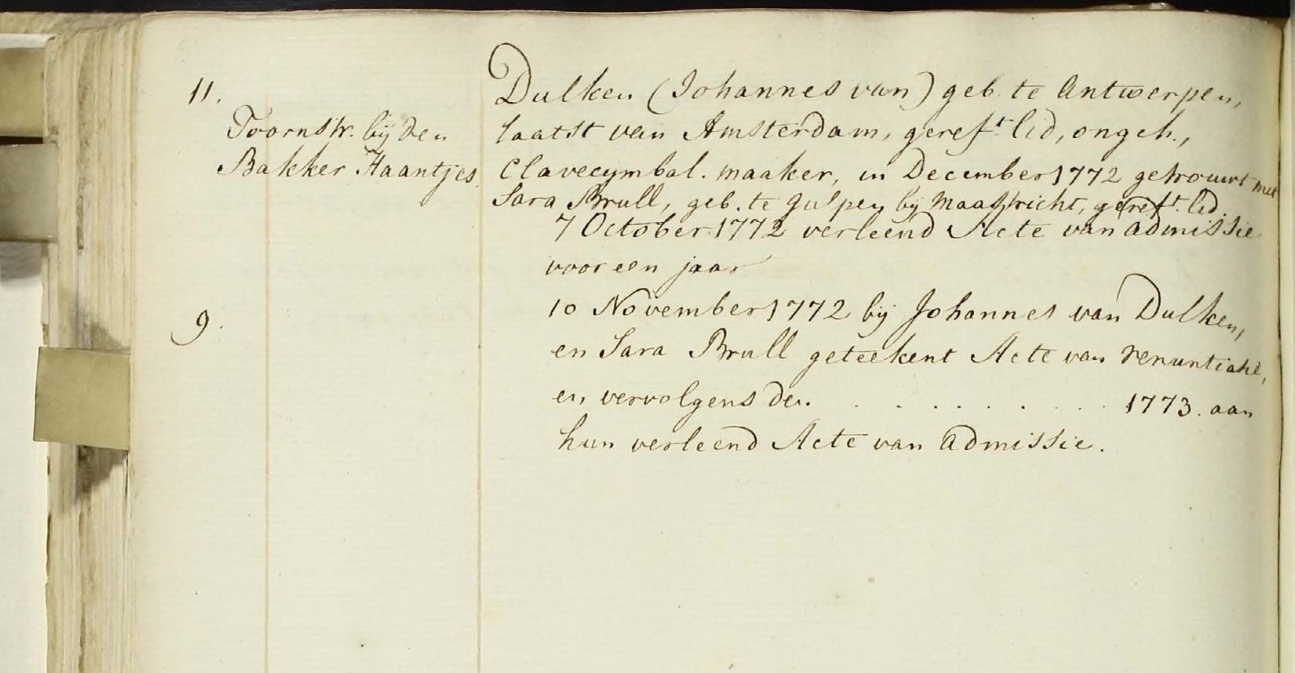 11.
Toornstr. bij den
Bakker Haantjes.
Dulken (Johannes van) geb. te Antwerpen,
laatst van Amsterdam, gereft. lid, ongeh.,
Clavecymbal. maaker, in December 1772 getrouwt met
Sara Brull, geb. te Gulpen bij Maastricht, gereft. lid.
7 October 1772 verleend Acte van admissie
voor een jaar
9.
10 November 1772 bij Johannes van Dulken,
en Sara Brull geteekent Acte van renuntiatie,
en vervolgens den . . . . . . . . 1773. aan
hun verleend Acte van admissie.